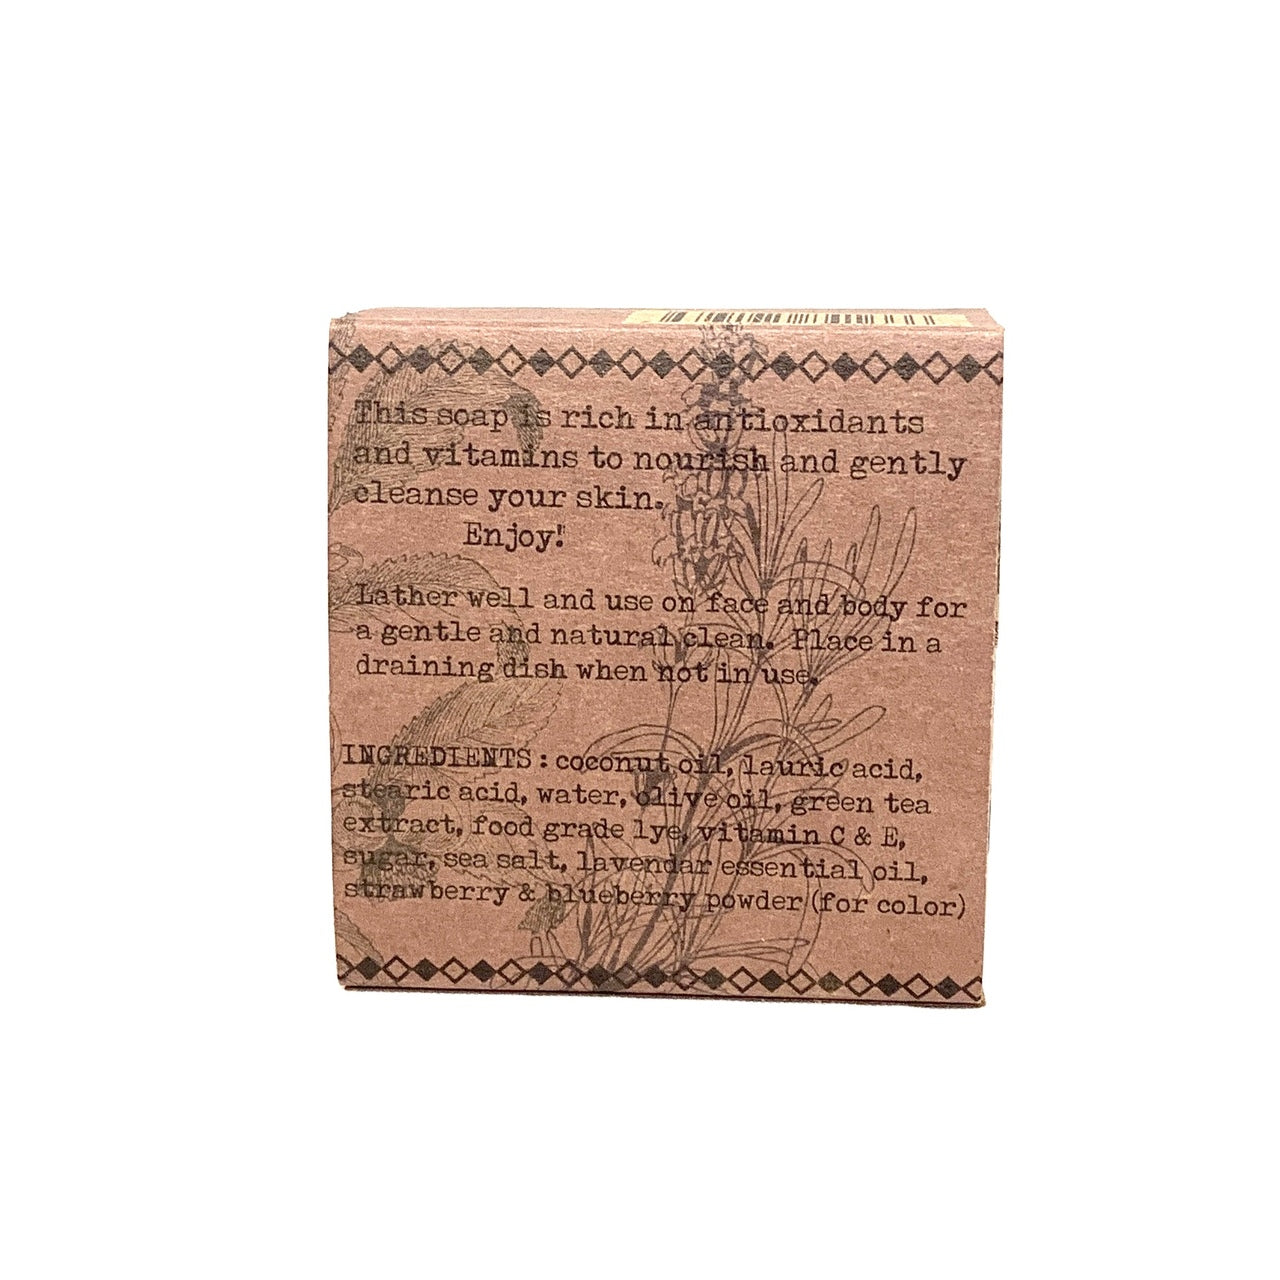 This soap is rich in antioxidants
and vitamins to nourish and gently
cleanse your skin.
Enjoy!
Lather well and use on face and body for
a gentle and natural clean. Place in a
draining dish when not in use.
INGREDIENTS: coconut oil, lauric acid,
stearic acid, water, olive oil, green tea
extract, food grade lye, vitamin C & E,
sugar, sea salt, lavendar essential oil,
strawberry & blueberry powder (for color)